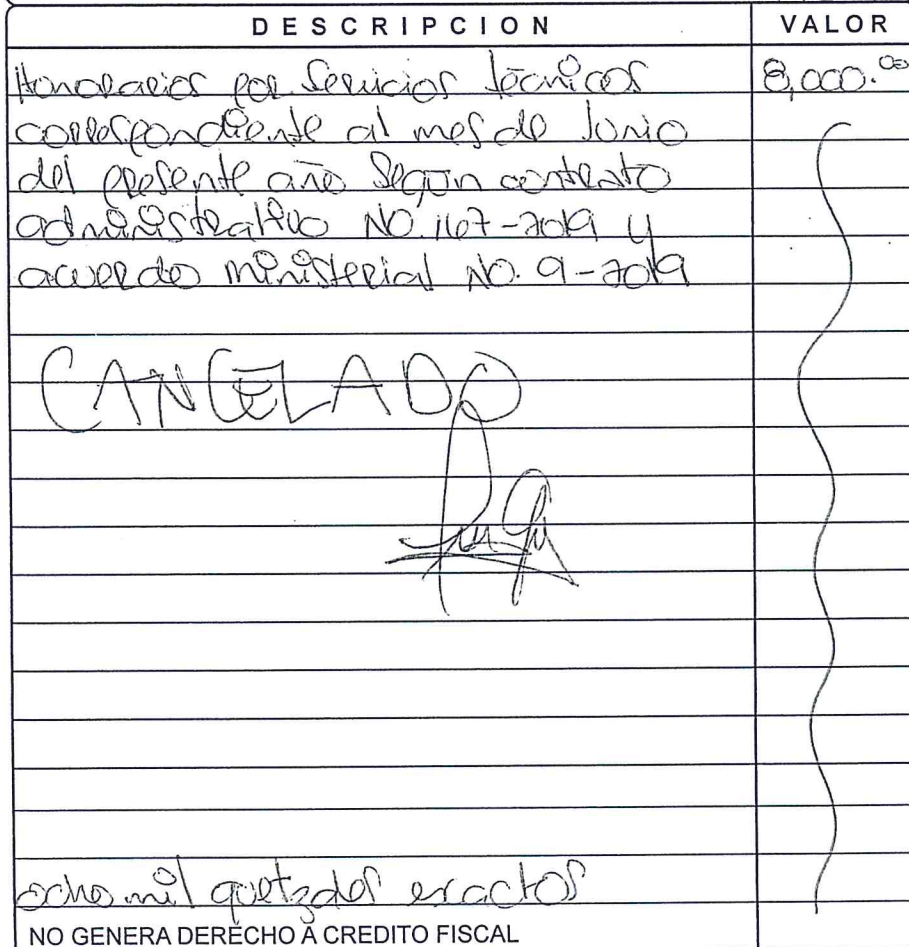 DESCRIPCION VALOR
Honorarios por Servicios técnicos 8,000.00
correspondiente al mes de Junio
del presente año Según contrato
administrativo NO. 167-2019 y
acuerdo ministerial NO. 9-2019
CANCELADO
ocho mil quetzales exactos
NO GENERA DERECHO A CREDITO FISCAL